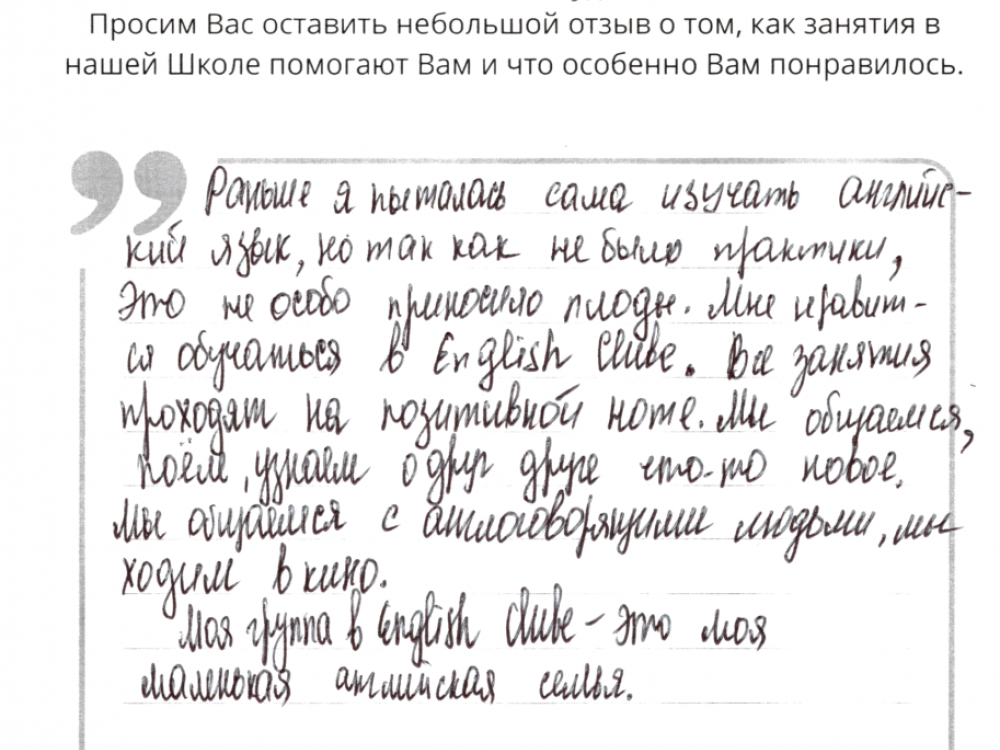 Просим Вас оставить небольшой отзыв о том, как занятия в
нашей Школе помогают Вам и что особенно Вам понравилось.
Раньше я пыталась сама изучать английс-
кий язык, но так как не было практики,
это не особо приносило плоды. Мне нравит-
ся обучаться в English Clube. Все занятия
проходят на позитивной ноте. Мы общаемся,
поём, узнаем о друг друге что-то новое.
Мы общаемся с англоговорящими людьми, мы
ходим в кино.
Моя группа в English Clube – это моя
маленькая английская семья.